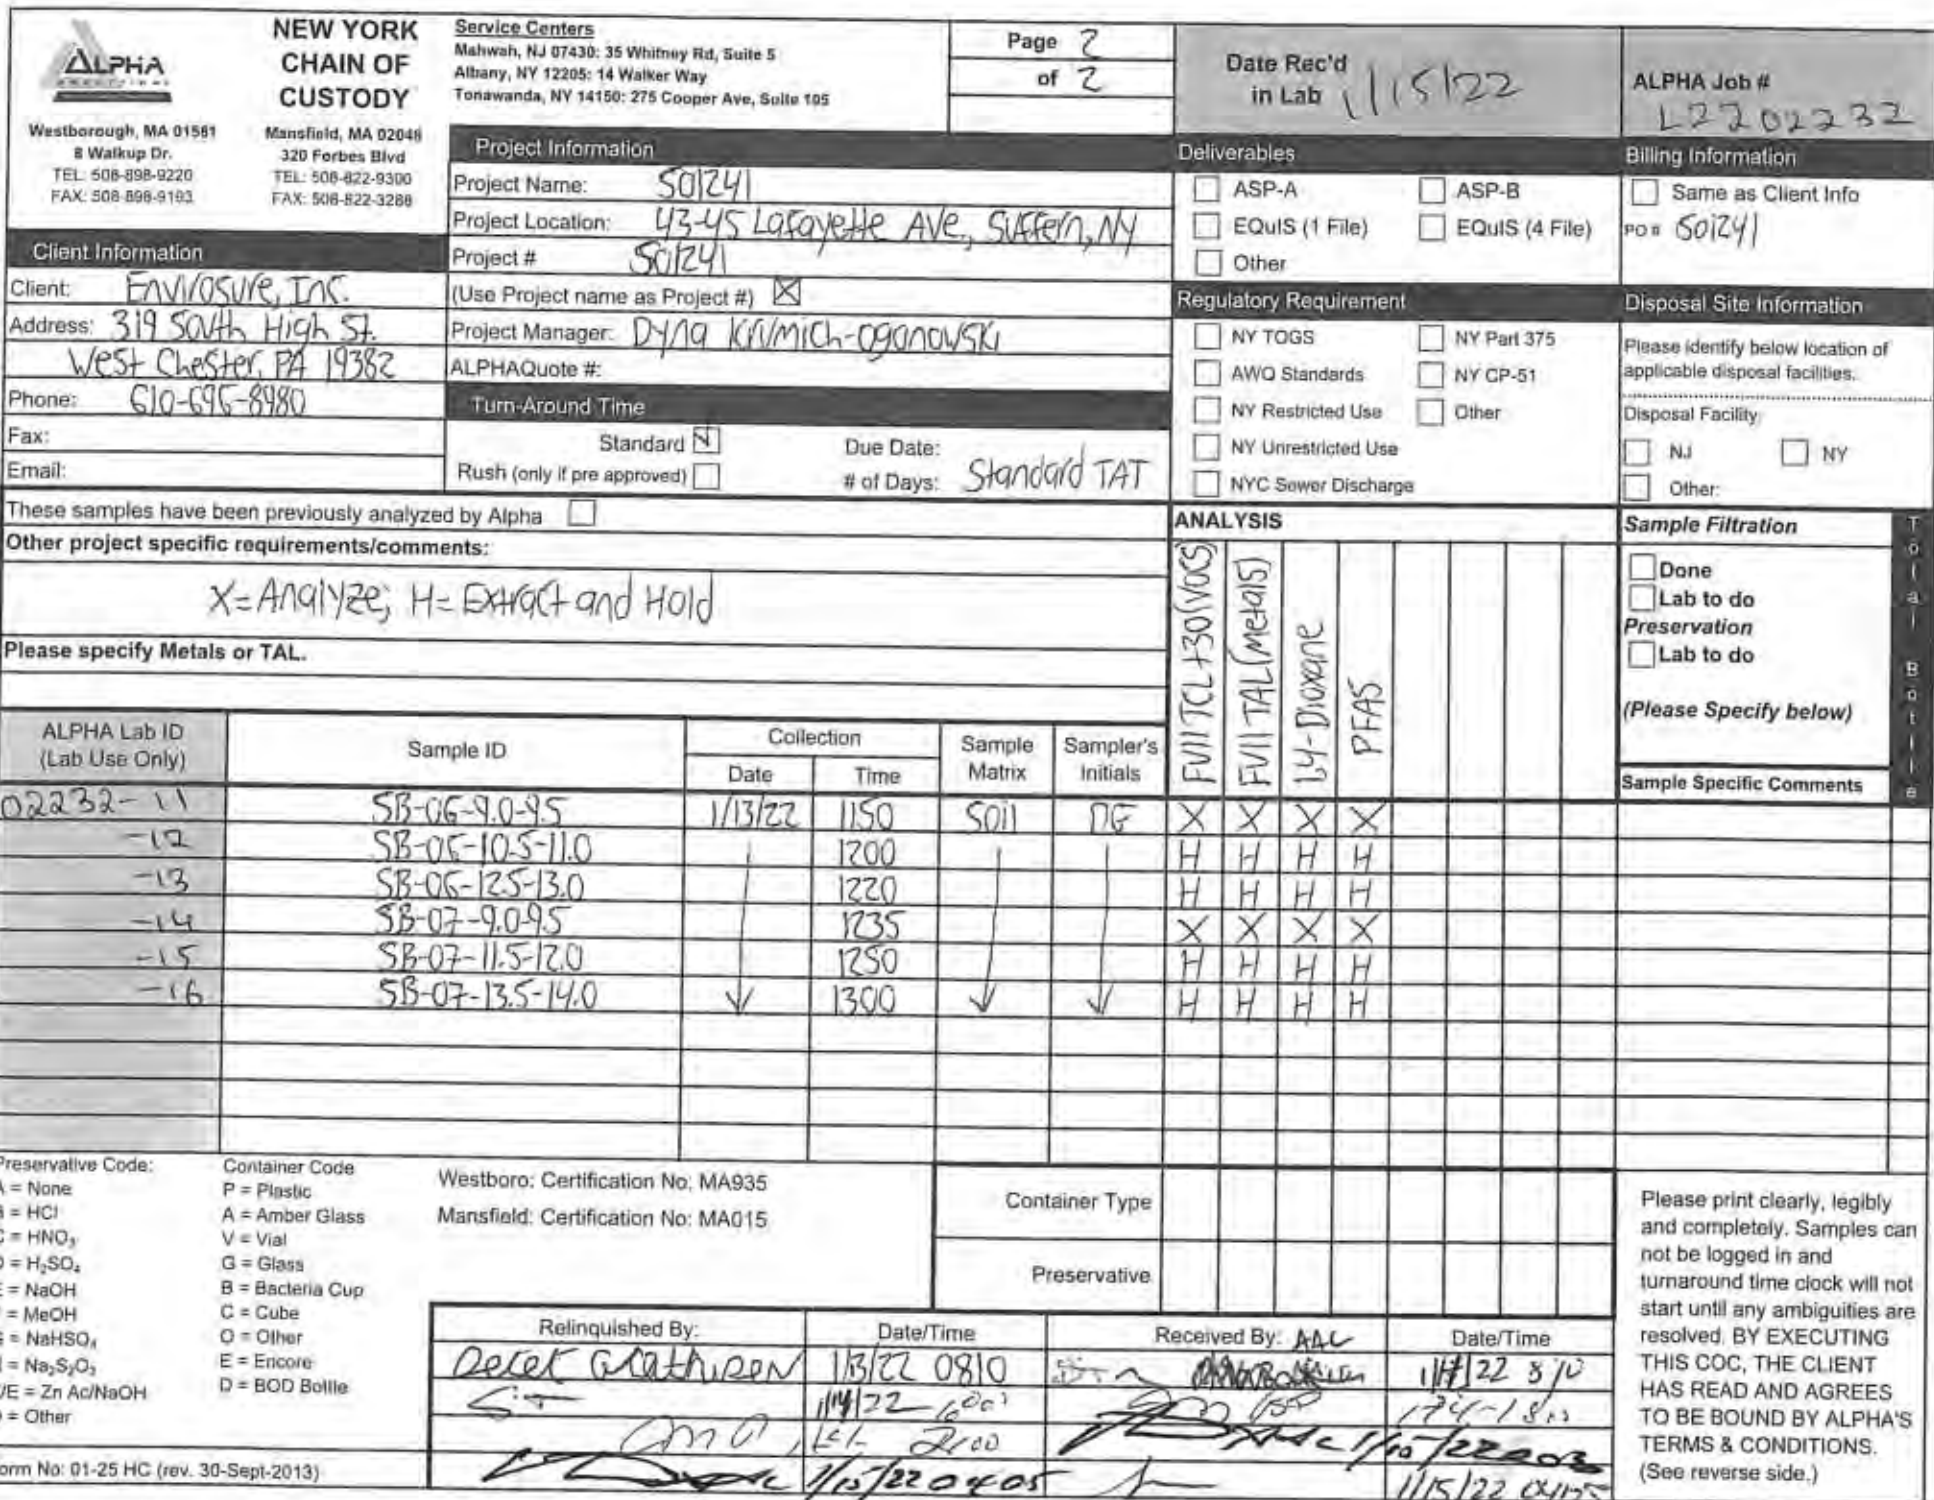 ALPHA
ANALYTICAL
Westborough, MA 01581
8 Walkup Dr.
TEL: 508-898-9220
FAX: 508-898-9193
NEW YORK
CHAIN OF
CUSTODY
Mansfield, MA 02048
320 Forbes Blvd
TEL: 508-822-9300
FAX: 508-822-3288
Service Centers
Mahwah, NJ 07430: 35 Whitney Rd, Suite 5
Albany, NY 12205: 14 Walker Way
Tonawanda, NY 14150: 275 Cooper Ave, Suite 105
Page 2
of 2
Date Rec'd
in Lab 1/15/22
ALPHA Job #
L2202232
Project Information
Project Name: SO1241
Project Location: 43-45 Lafayette Ave, Suffern, NY
Project # SO1241
(Use Project name as Project #) X
Project Manager: Dyna Krumich-Oganowski
ALPHAQuote #:
Client Information
Client: Envirosure, Inc.
Address: 319 South High St.
West Chester, PA 19382
Phone: 610-696-8980
Fax:
Email:
Turn-Around Time
Standard
Due Date:
Rush (only if pre approved)
# of Days: Standard TAT
Deliverables
ASP-A ASP-B
EQuIS (1 File) EQuIS (4 File)
Other
Regulatory Requirement
NY TOGS NY Part 375
AWQ Standards NY CP-51
NY Restricted Use Other
NY Unrestricted Use
NYC Sewer Discharge
Billing Information
Same as Client Info
PO # SO1241
Disposal Site Information
Please identify below location of
applicable disposal facilities.
Disposal Facility:
NJ NY
Other:
These samples have been previously analyzed by Alpha
Other project specific requirements/comments:
X=Analyze; H=Extract and Hold
Please specify Metals or TAL.
ANALYSIS
Full TCL+30(VOCS)
Full TAL(Metals)
1,4-Dioxane
PFAS
Sample Filtration
Done
Lab to do
Preservation
Lab to do
(Please Specify below)
Sample Specific Comments
Total Bottle
ALPHA Lab ID
(Lab Use Only)
Sample ID
Collection
Date Time
Sample
Matrix
Sampler's
Initials
02232-11 SB-06-9.0-9.5 1/13/22 1150 Soil DG X X X X
-12 SB-06-10.5-11.0 1200 H H H H
-13 SB-06-12.5-13.0 1220 H H H H
-14 SB-07-9.0-9.5 1235 X X X X
-15 SB-07-11.5-12.0 1250 H H H H
-16 SB-07-13.5-14.0 1300 H H H H
Preservative Code:
A = None
B = HCl
C = HNO₃
D = H₂SO₄
E = NaOH
F = MeOH
G = NaHSO₄
H = Na₂S₂O₃
K/E = Zn Ac/NaOH
O = Other
Container Code
P = Plastic
A = Amber Glass
V = Vial
G = Glass
B = Bacteria Cup
C = Cube
O = Other
E = Encore
D = BOD Bottle
Westboro: Certification No: MA935
Mansfield: Certification No: MA015
Container Type
Preservative
Relinquished By: Date/Time Received By: AAL Date/Time
Derek Grathusen 1/13/22 0810 1/14/22 810
1/14/22
2100
AAC 1/15/22
AAC 1/15/22 0405 1/15/22
Please print clearly, legibly
and completely. Samples can
not be logged in and
turnaround time clock will not
start until any ambiguities are
resolved. BY EXECUTING
THIS COC, THE CLIENT
HAS READ AND AGREES
TO BE BOUND BY ALPHA'S
TERMS & CONDITIONS.
(See reverse side.)
Form No: 01-25 HC (rev. 30-Sept-2013)